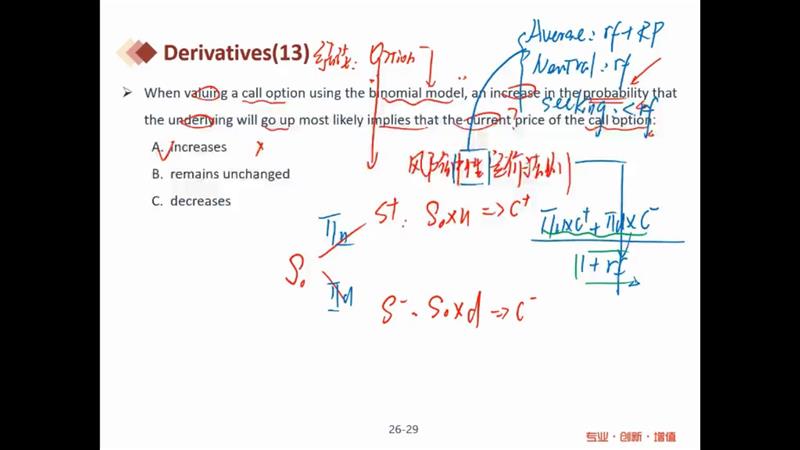 Derivatives(13)
Option
Averse: rf + RP
Neutral: rf
Seeking: < rf
When valuing a call option using the binomial model, an increase in the probability that
the underlying will go up most likely implies that the current price of the call option:
A. increases
B. remains unchanged
C. decreases
风险中性定价法则
S+: S₀×u => C+
πu×C+ + πd×C-
1+rf
πu
S₀
πd
S-. S₀×d => C-
26-29
专业·创新·增值